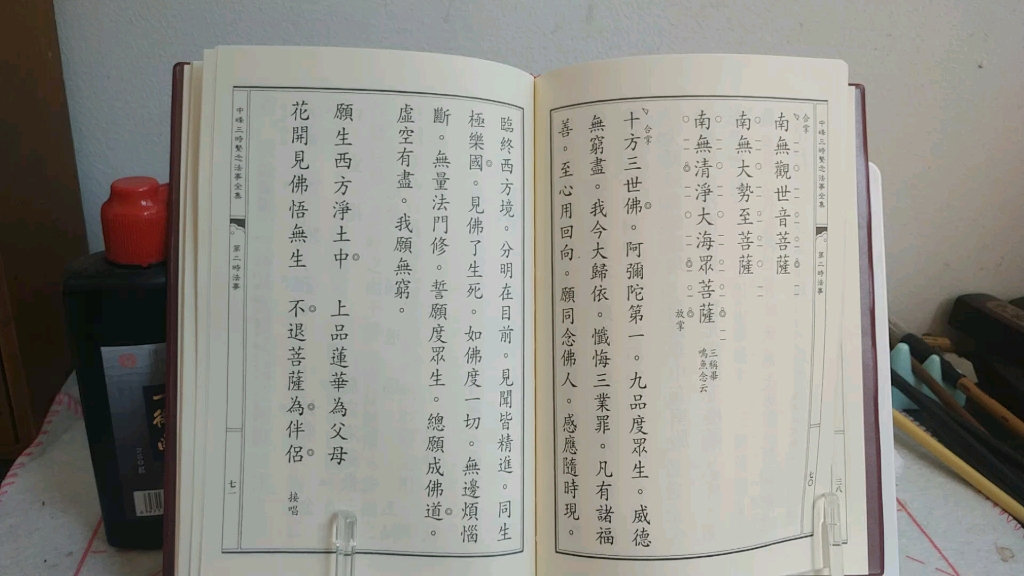 中峰三時繫念法事全集
第二時法事
七〇
三八
合掌
南無觀世音菩薩
南無大勢至菩薩
南無清淨大海眾菩薩
三稱畢
鳴魚念云
放掌
合掌
十方三世佛。阿彌陀第一。九品度眾生。威德
無窮盡。我今大歸依。懺悔三業罪。凡有諸福
善。至心用回向。願同念佛人。感應隨時現。
臨終西方境。分明在目前。見聞皆精進。同生
極樂國。見佛了生死。如佛度一切。無邊煩惱
斷。無量法門修。誓願度眾生。總願成佛道。
虛空有盡。我願無窮。
願生西方淨土中 上品蓮華為父母
花開見佛悟無生 不退菩薩為伴侶
接唱
中峰三時繫念法事全集
第二時法事
七一